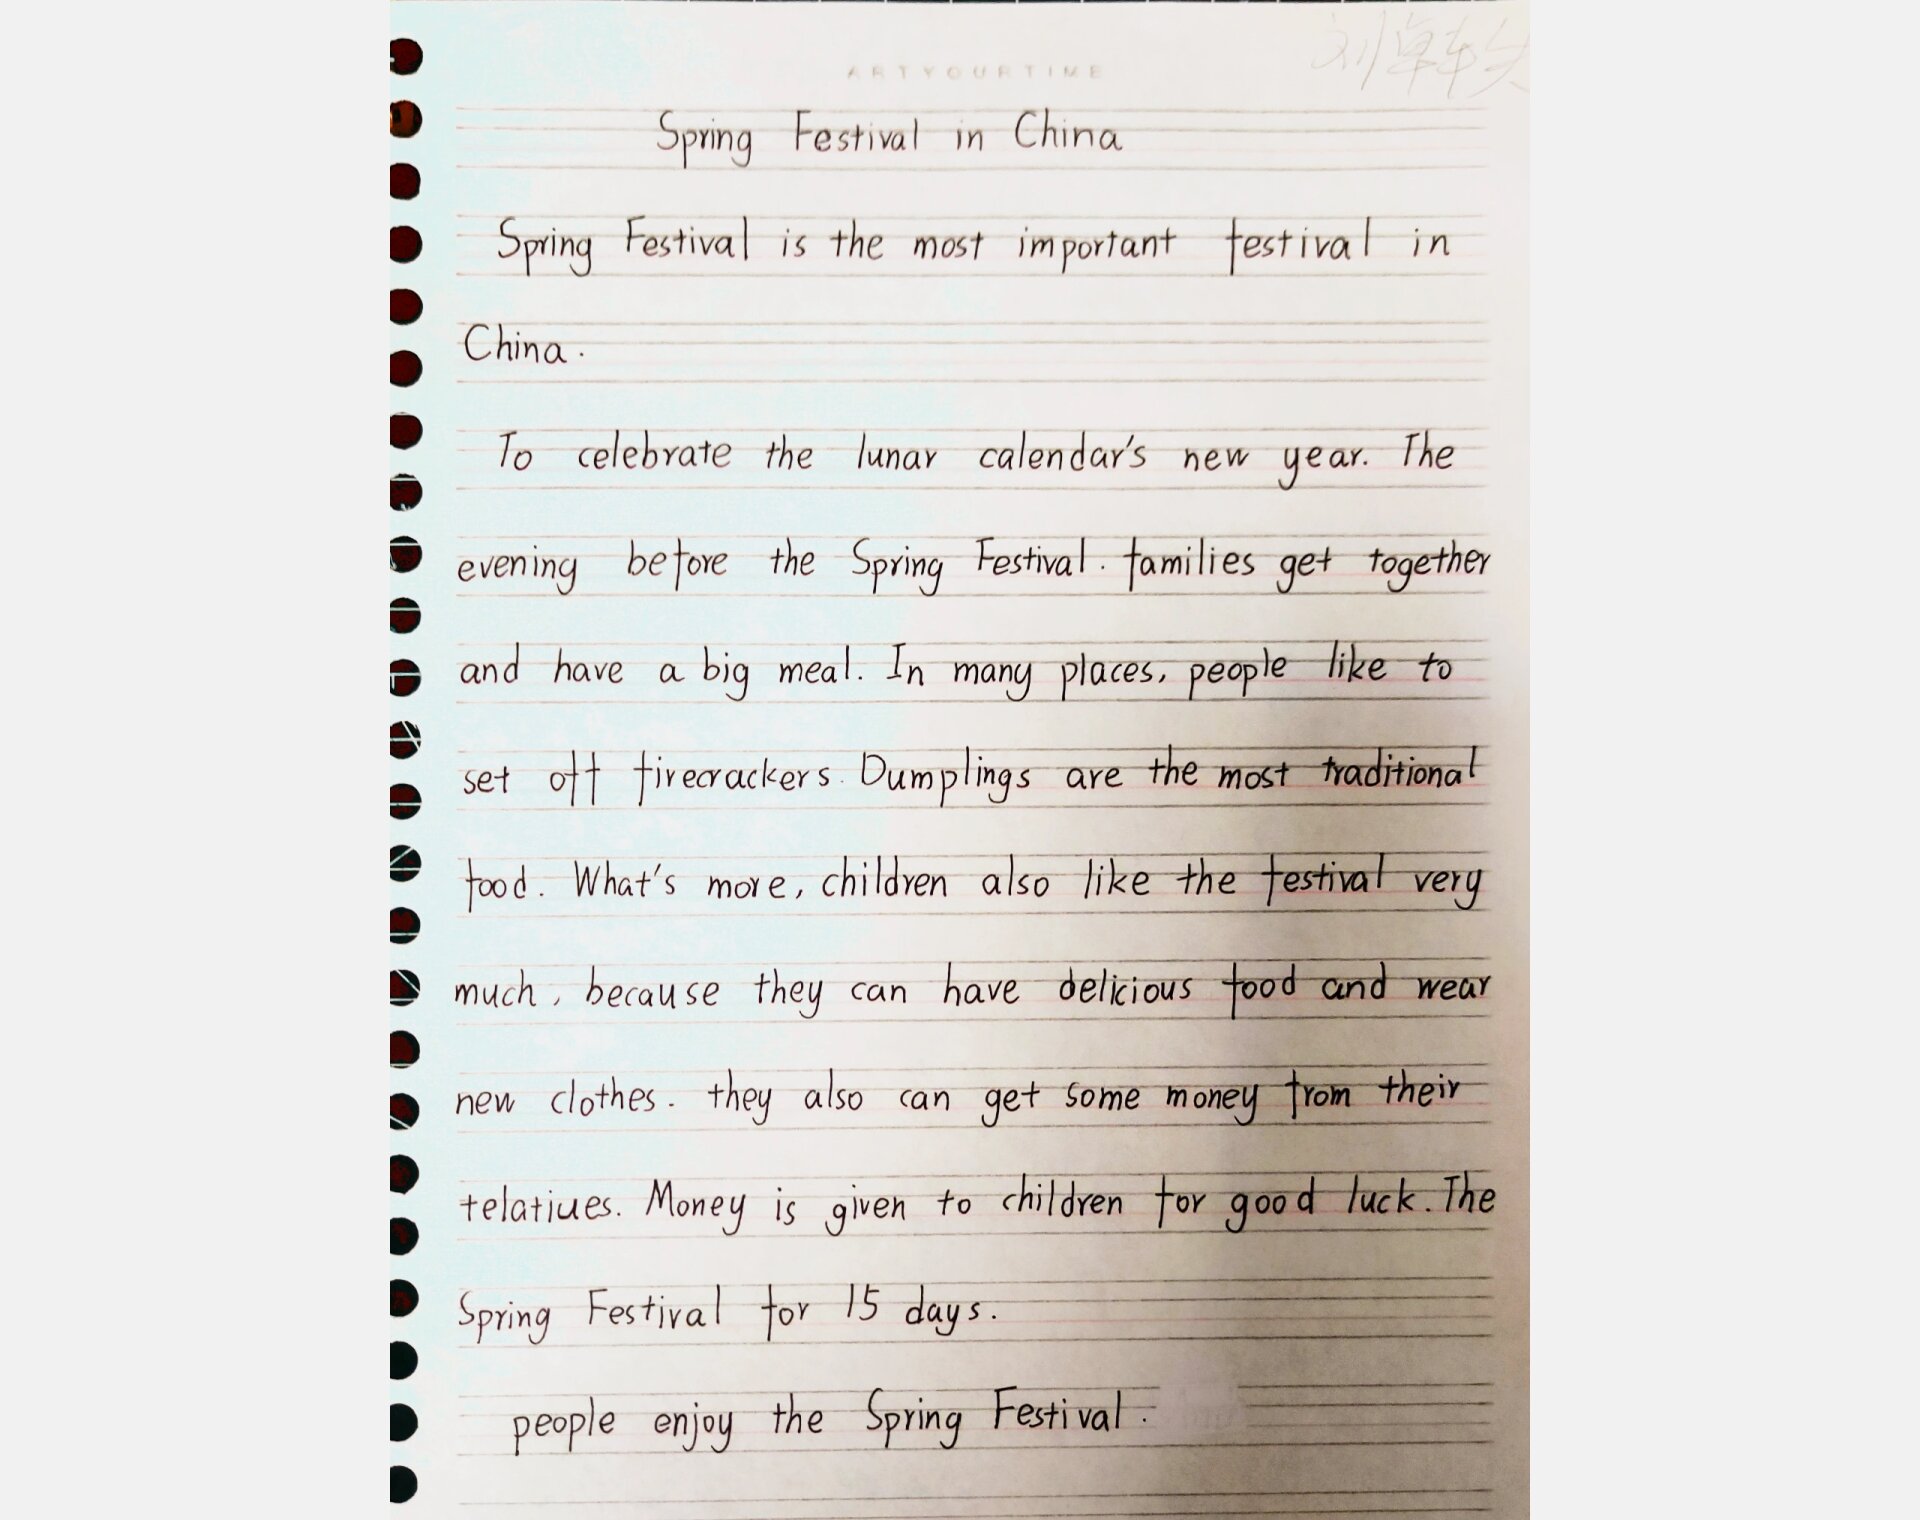 ARTYOURTIME
Spring Festival in China
Spring Festival is the most important festival in
China.
To celebrate the lunar calendar's new year. The
evening before the Spring Festival. families get together
and have a big meal. In many places, people like to
set off firecrackers. Dumplings are the most traditional
food. What's more, children also like the festival very
much, because they can have delicious food and wear
new clothes. they also can get some money from their
telatiues. Money is given to children for good luck. The
Spring Festival for 15 days.
people enjoy the Spring Festival.